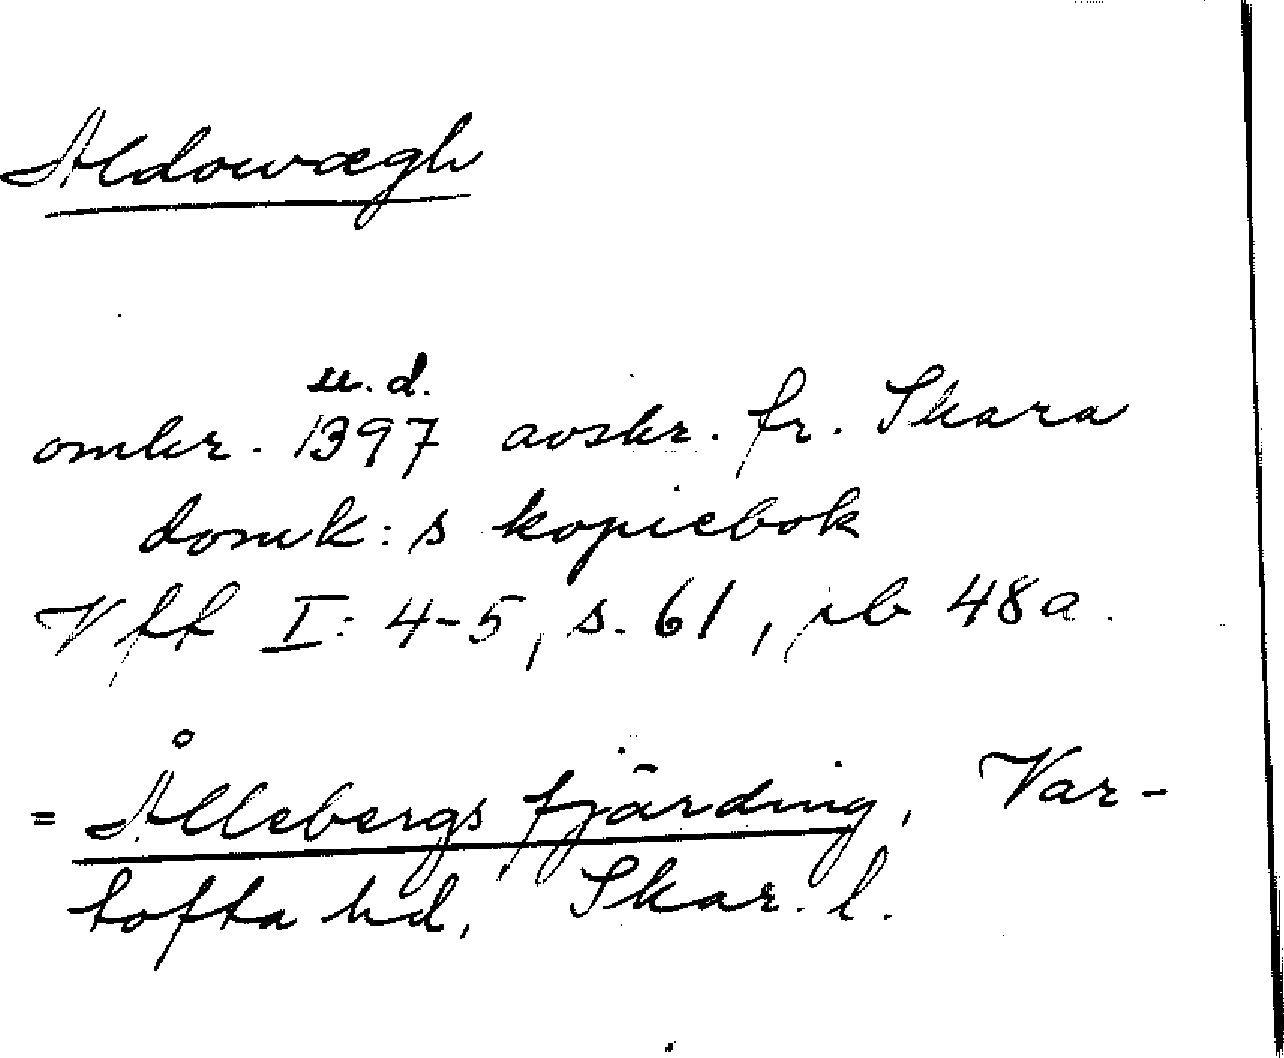 Aldowægh
u.d.
omkr. 1397 avskr. fr. Skara
domk:s kopiebok
Vff I: 4-5, s. 61, rb 48a.
= Ållebergs fjärding, Var-
tofta hd, Skar. l.